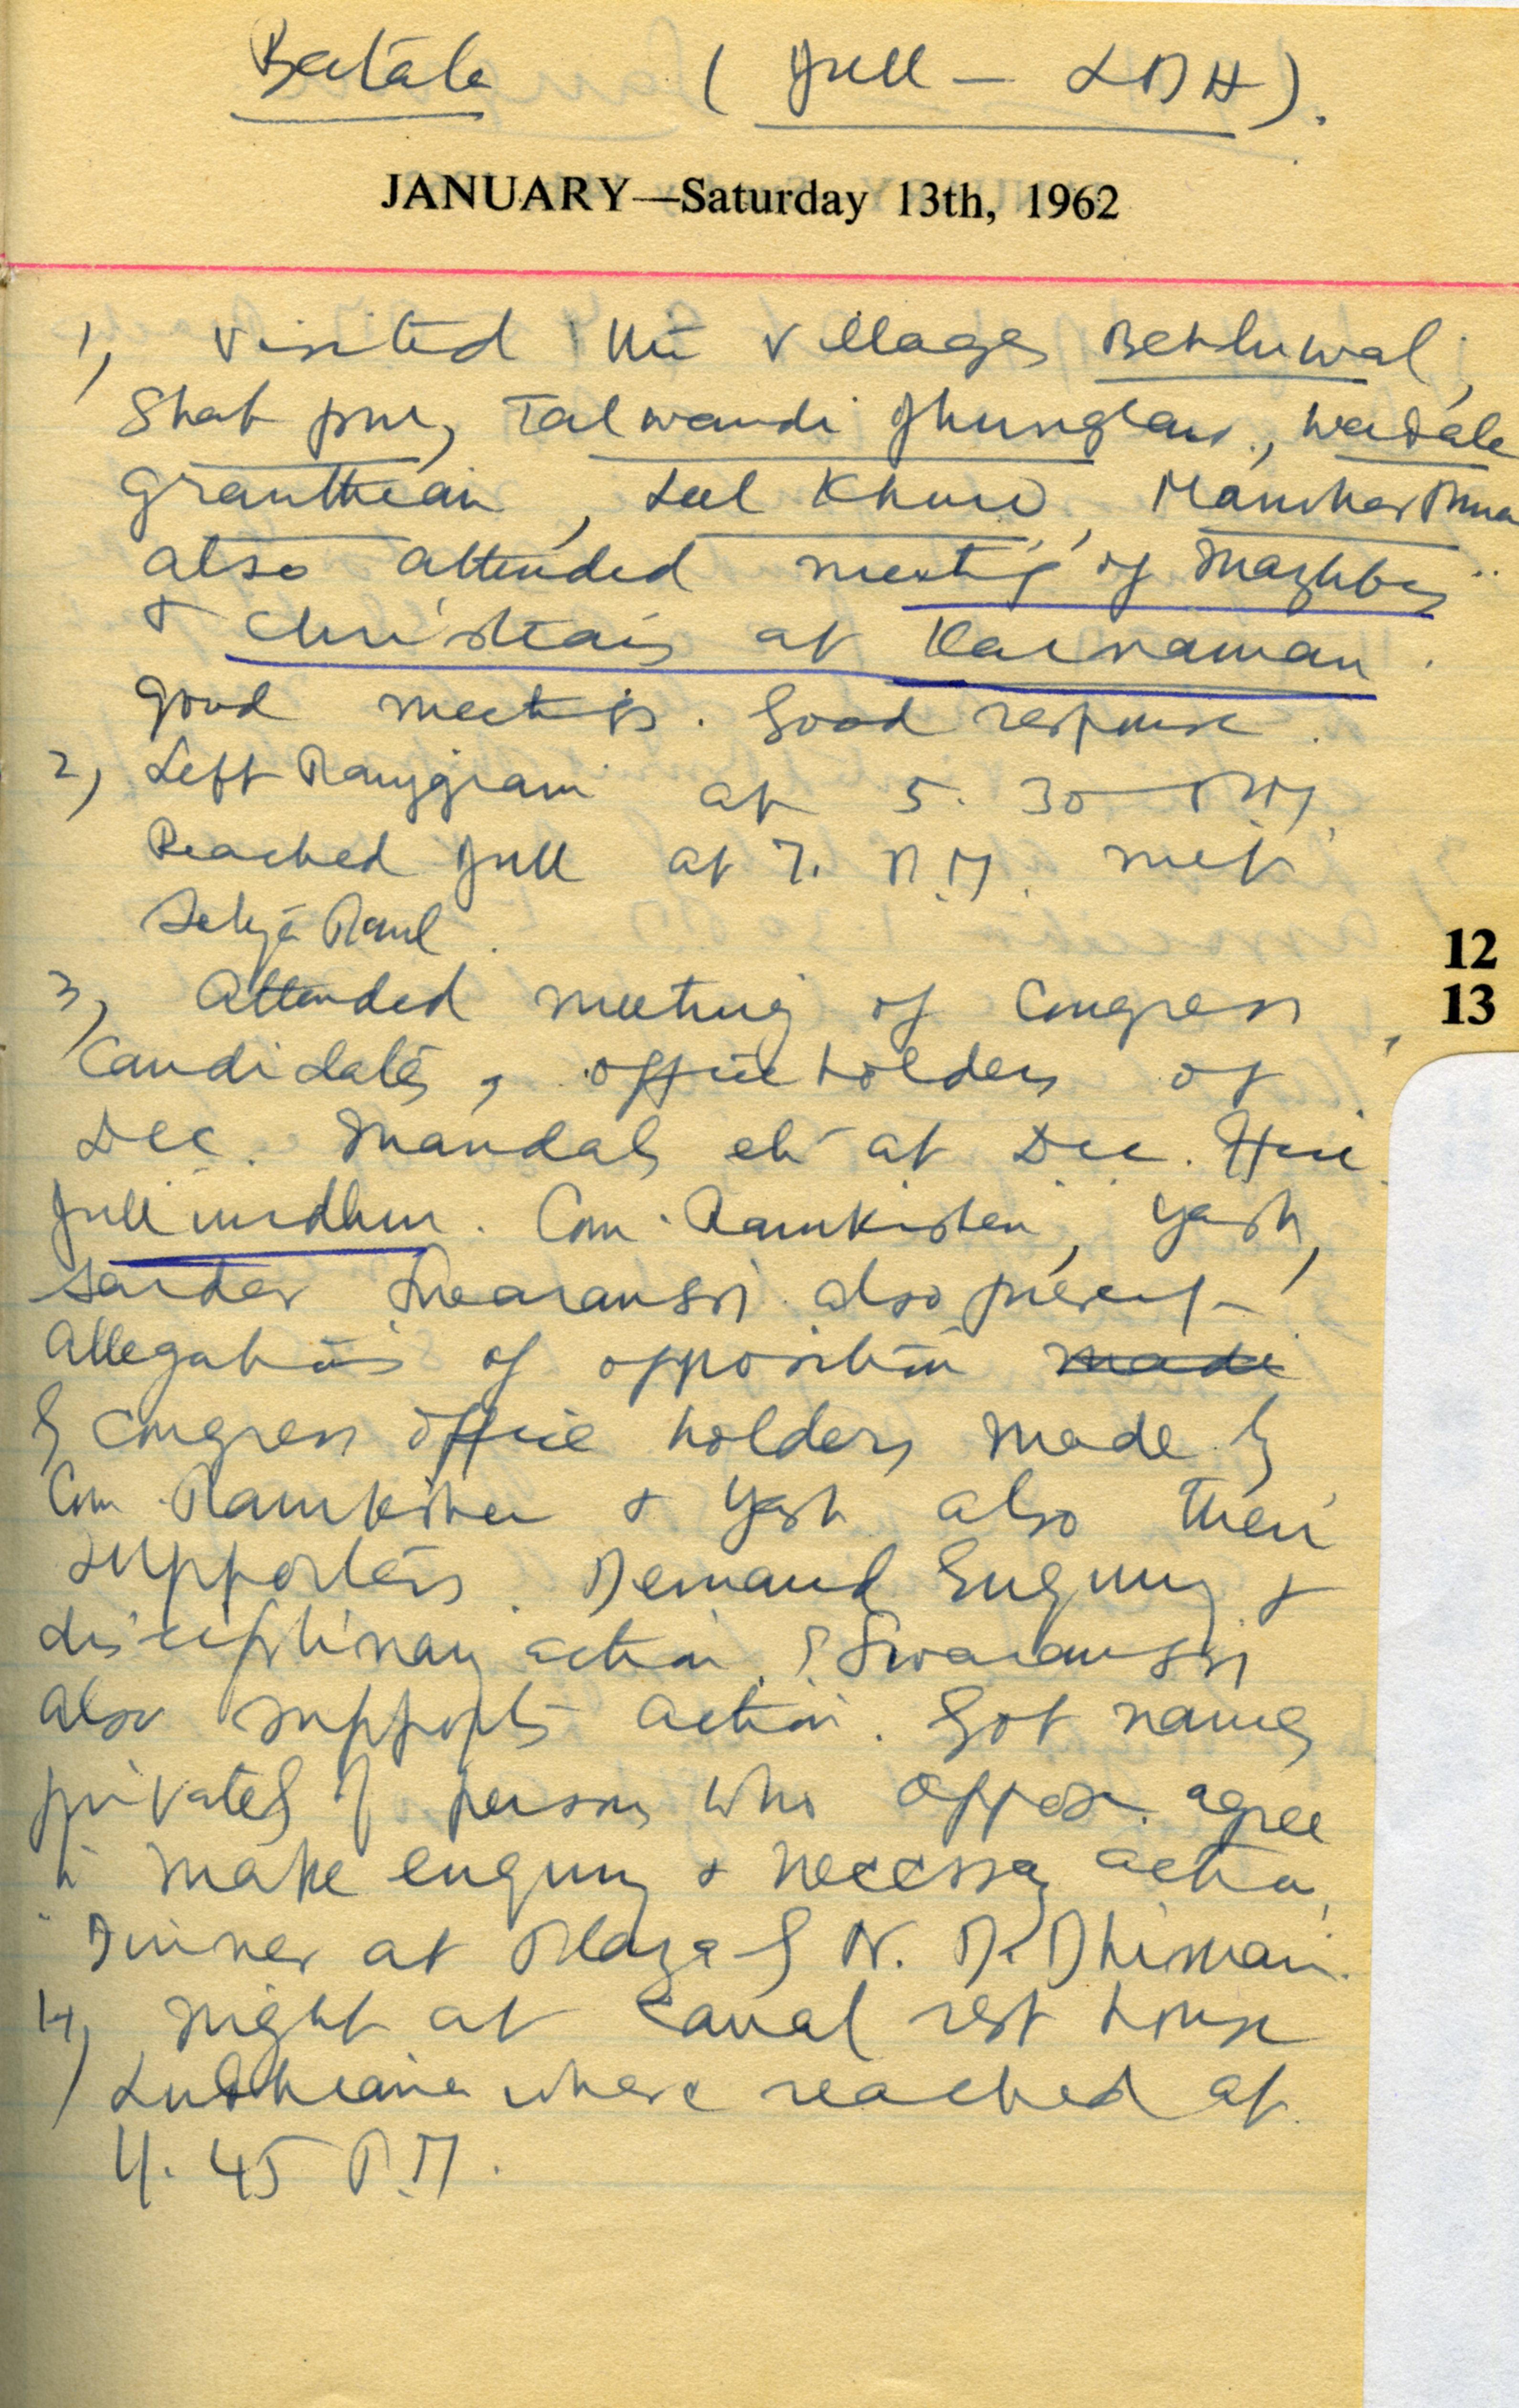 Batala ( Jull - LDH).
JANUARY—Saturday 13th, 1962
1, Visited the villages Behluwal,
Shah pur, Talwandi Jhunglan., Wadala
Granthian, Leel Khurd,
also attended meeting of Mazhbis
& Christians at Kainauman.
good meetings. Good response.
2, Left at 5. 30 P.M.
Reached Jull at 7. P.M. met
Satya Paul.
3, Attended meeting of Congress
Candidates, office holders of
Dcc. Mandals etc at Dcc. Office
Jullundhur. Com. Ramkishen, Yash,
Sardar Swaransin also present
Allegations of opposition made
by Congress office holders made by
Com. Ramkishen & Yash also their
supporters. Demand Enquiry &
disciplinary action. S Swaransin
also supports action. Got names
privately of persons who oppose. agree
to make enquiry & necessary action,
Dinner at Plaza by N. D. Dhiman.
4, Night at Canal rest house
Ludhiana where reached at
45 P.M.
12
13